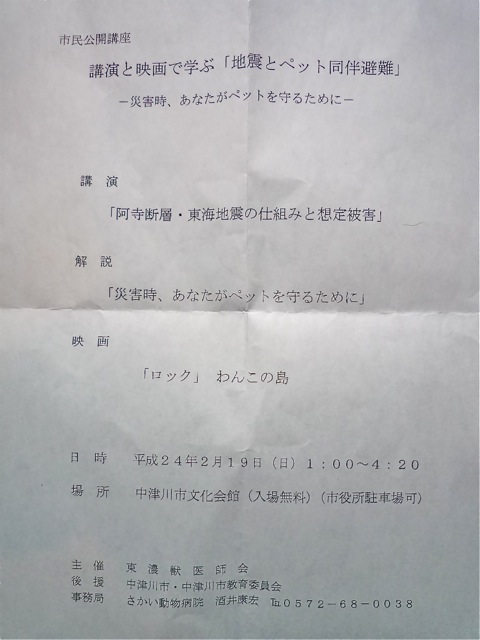 市民公開講座
講演と映画で学ぶ「地震とペット同伴避難」
－災害時、あなたがペットを守るために－
講　演
「阿寺断層・東海地震の仕組みと想定被害」
解　説
「災害時、あなたがペットを守るために」
映　画
「ロック」　わんこの島
日　時　平成２４年２月１９日（日）１：００～４：２０
場　所　中津川市文化会館（入場無料）（市役所駐車場可）
主　催　東　濃　獣　医　師　会
後　援　中津川市・中津川市教育委員会
事務局　さかい動物病院　酒井康宏　℡０５７２－６８－００３８